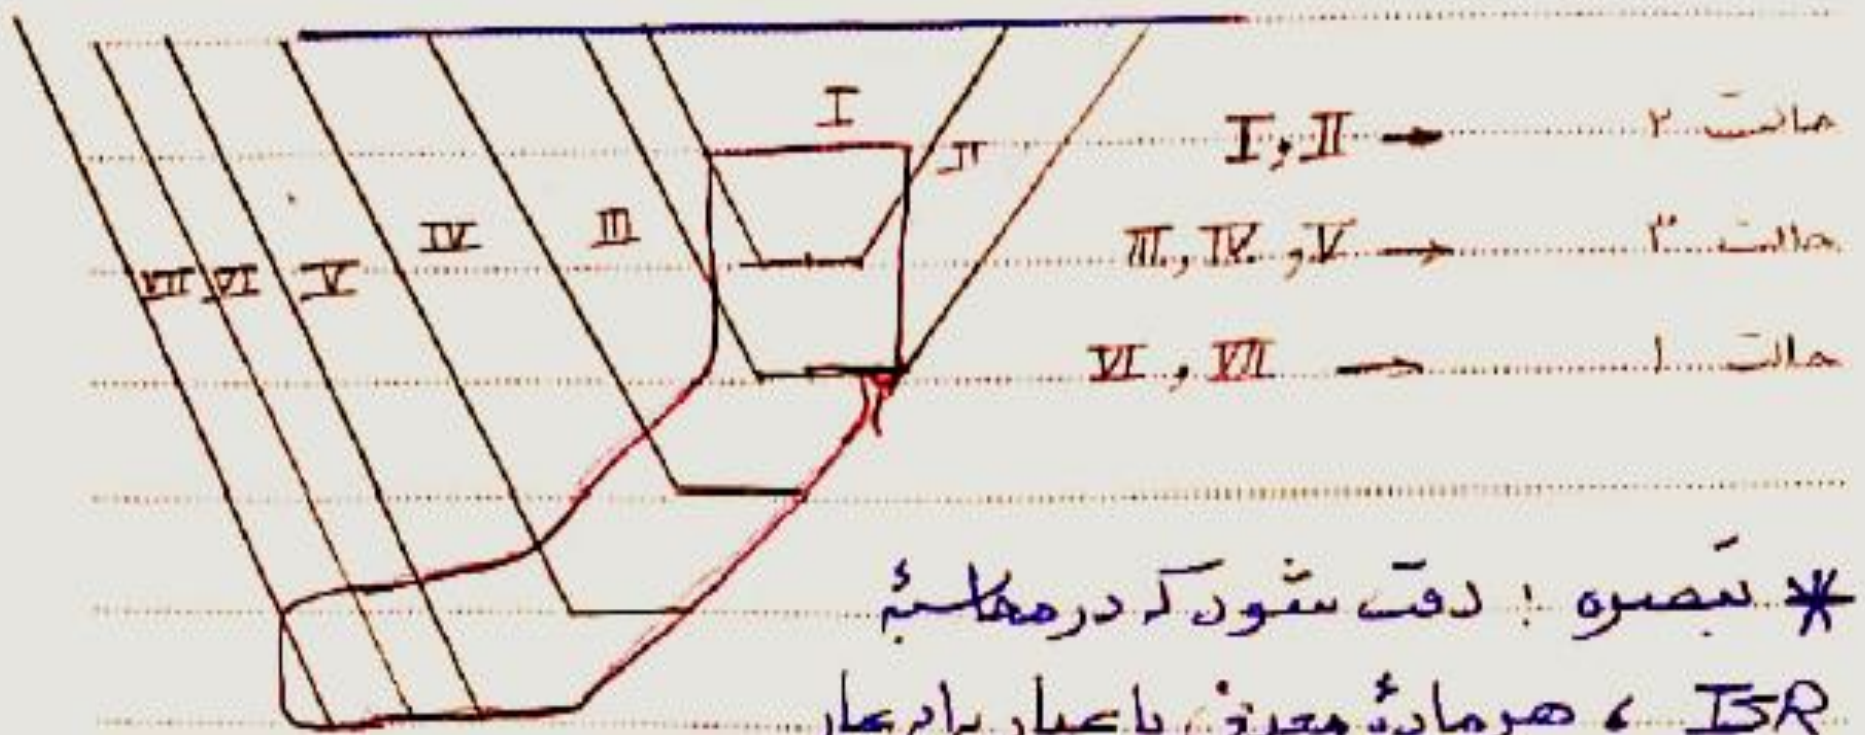 I
II
III
IV
V
VI
VII
حالت ۲ → I, II
حالت ۳ → III, IV, V
حالت ۱ → VI, VII
* تبصره : دقت شود که در محاسبهٔ
ISR ، هر مادهٔ معدنی با عیار برابر عیار